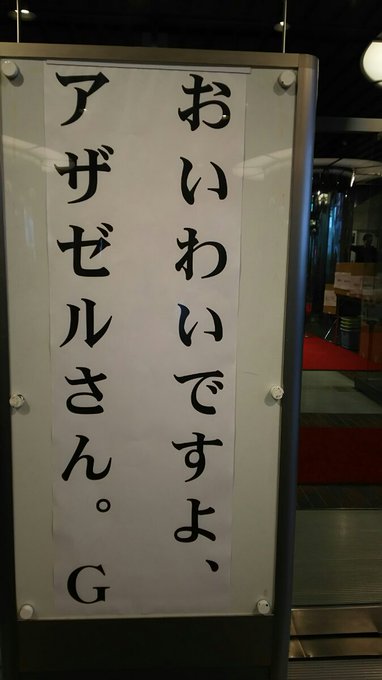 おいわいですよ、
アザゼルさん。G